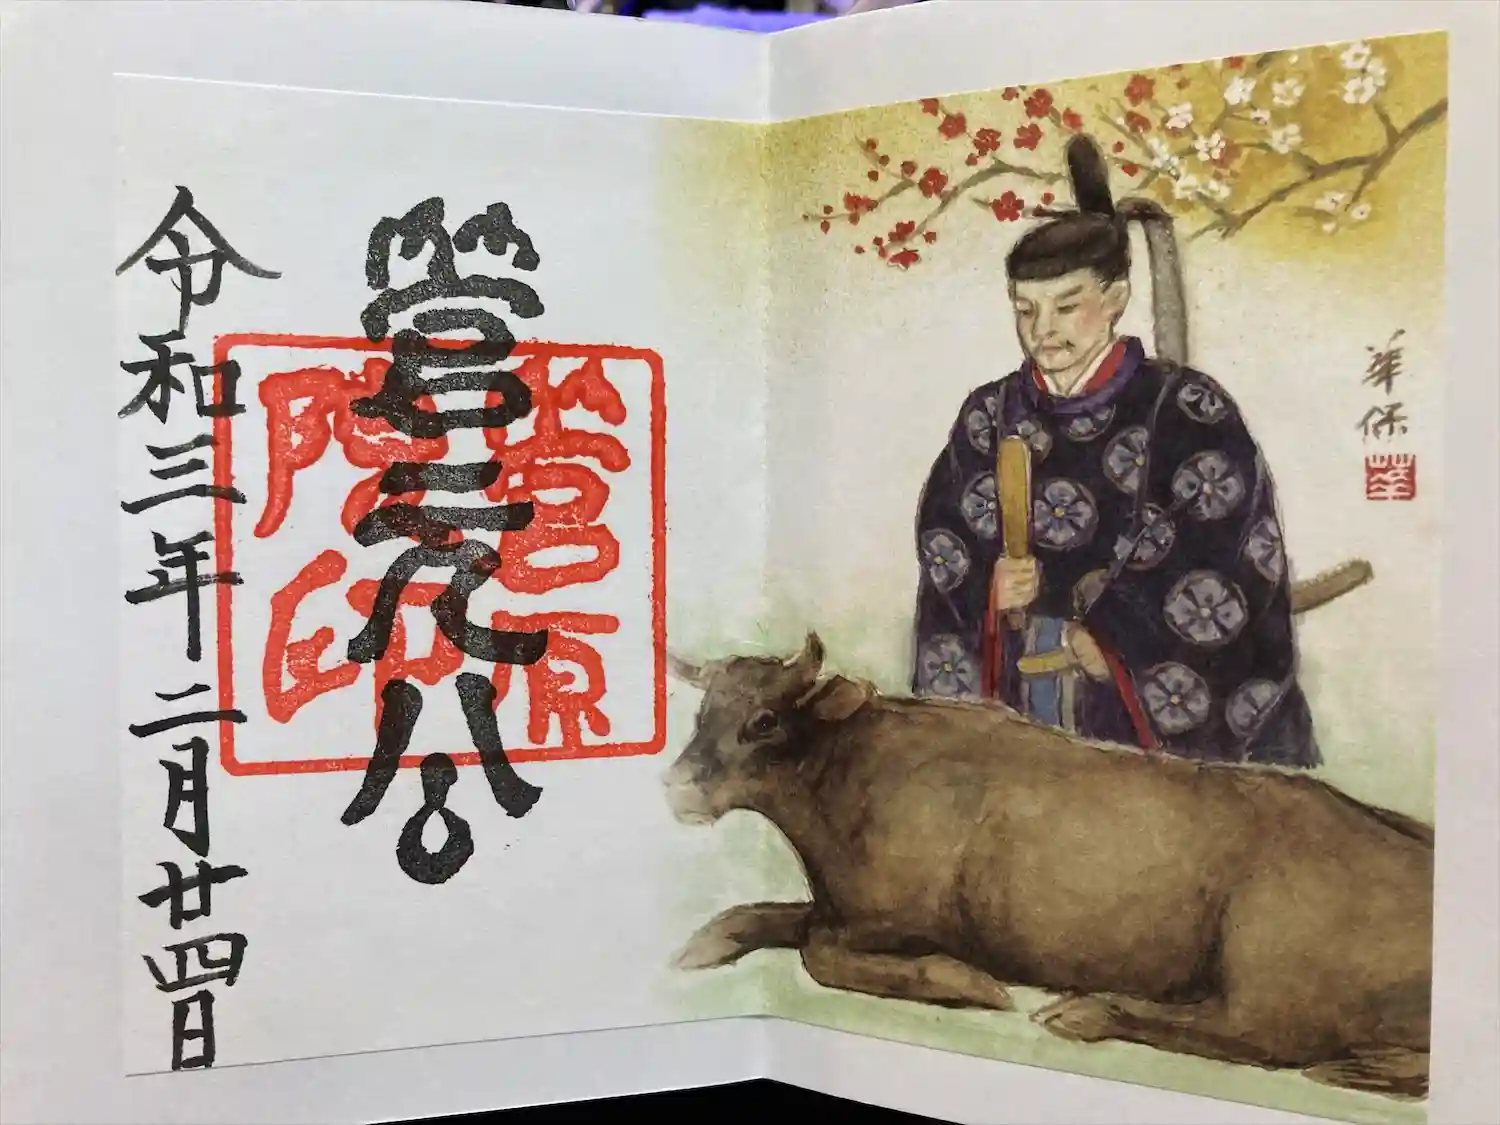 令和三年二月廿四日
菅公
菅原
院印
華保
華